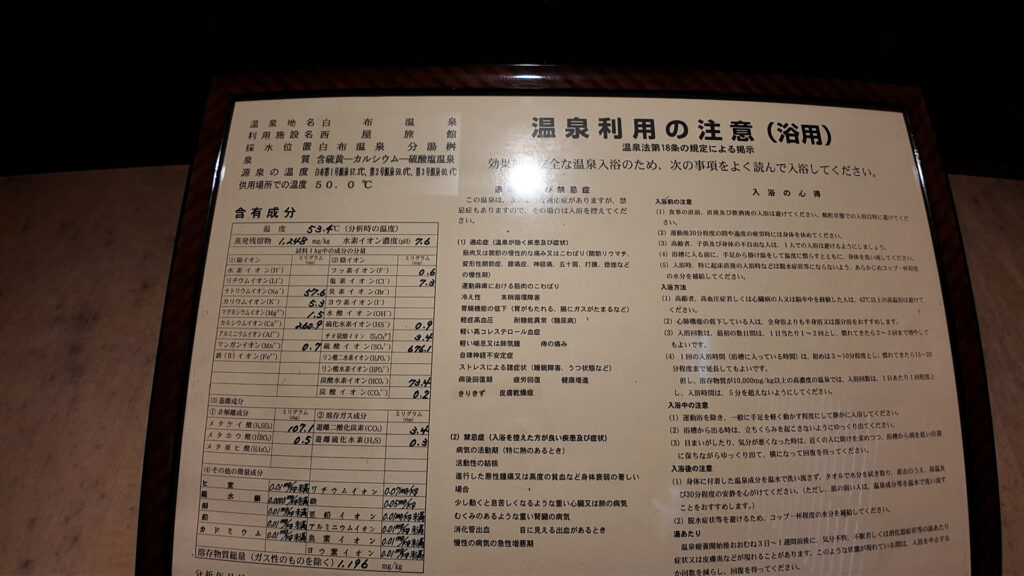 温泉地名 白布温泉
利用施設名 西屋旅館
採水位置 白布温泉 分湯樹
泉質 含硫黄ーカルシウムー硫酸塩温泉
源泉の温度 白布第1号源泉57.3℃、第2号源泉59.0℃、第3号源泉60.4℃
供用場所での温度 50.0 ℃
含有成分
温度 53.4℃ (分析時の温度)
蒸発残留物 1,248 mg/kg 水素イオン濃度(pH) 7.6
試料1kg中の成分の分量
(1)陽イオン ミリグラム(mg) (2)陰イオン ミリグラム(mg)
水素イオン(H⁺) フッ素イオン(F⁻) 0.6
リチウムイオン(Li⁺) 塩素イオン(Cl⁻) 7.3
ナトリウムイオン(Na⁺) 57.6 臭素イオン(Br⁻)
カリウムイオン(K⁺) 5.3 ヨウ素イオン(I⁻)
マグネシウムイオン(Mg²⁺) 1.5 水酸イオン(OH⁻)
カルシウムイオン(Ca²⁺) 260.9 硫化水素イオン(HS⁻) 0.9
アルミニウムイオン(Al³⁺) チオ硫酸イオン(S₂O₃²⁻) 3.4
マンガンイオン(Mn²⁺) 0.7 硫酸イオン(SO₄²⁻) 676.1
鉄(Ⅱ)イオン(Fe²⁺) リン酸二水素イオン(H₂PO₄⁻)
リン酸水素イオン(HPO₄²⁻)
炭酸水素イオン(HCO₃⁻) 73.4
炭酸イオン(CO₃²⁻) 0.2
(3)遊離成分
①非解離成分 ミリグラム(mg) ②溶存ガス成分 ミリグラム(mg)
メタケイ酸(H₂SiO₃) 107.1 遊離二酸化炭素(CO₂) 3.4
メタホウ酸(HBO₂) 0.5 遊離硫化水素(H₂S) 0.3
メタ亜ヒ酸(HAsO₂)
(4)その他の微量成分
ヒ素 0.01mg/kg未満 リチウムイオン 0.07mg/kg
総水銀 0.0005mg/kg未満 鉄 0.05mg/kg
銅 0.01mg/kg未満 亜鉛イオン 0.01mg/kg未満
鉛 0.01mg/kg未満 アルミニウムイオン 0.01mg/kg未満
カドミウム 0.01mg/kg未満 臭素イオン
ヨウ素イオン
溶存物質総量(ガス性のものを除く) 1,196 mg/kg
温泉利用の注意(浴用)
温泉法第18条の規定による掲示
効果 安全な温泉入浴のため、次の事項をよく読んで入浴してください。
適 び禁忌症
この温泉は、次のような適応症がありますが、禁
忌症もありますので、その場合は入浴を控えてくだ
さい。
(1) 適応症(温泉が効く疾患及び症状)
筋肉又は関節の慢性的な痛み又はこわばり(関節リウマチ、
変形性関節症、腰痛症、神経痛、五十肩、打撲、捻挫など
の慢性期)
運動麻痺における筋肉のこわばり
冷え性 末梢循環障害
胃腸機能の低下(胃がもたれる、腸にガスがたまるなど)
軽症高血圧 耐糖能異常(糖尿病)
軽い高コレステロール血症
軽い喘息又は肺気腫 痔の痛み
自律神経不安定症
ストレスによる諸症状(睡眠障害、うつ状態など)
病後回復期 疲労回復 健康増進
きりきず 皮膚乾燥症
(2) 禁忌症(入浴を控えた方が良い疾患及び症状)
病気の活動期(特に熱のあるとき)
活動性の結核
進行した悪性腫瘍又は高度の貧血など身体衰弱の著しい
場合
少し動くと息苦しくなるような重い心臓又は肺の病気
むくみのあるような重い腎臓の病気
消化管出血 目に見える出血があるとき
慢性の病気の急性増悪期
入浴の心得
入浴前の注意
(1) 食事の直前、直後及び飲酒後の入浴は避けてください。酩酊状態での入浴は特に避けてくだ
さい。
(2) 運動後30分程度の間や過度の疲労時には身体を休めてください。
(3) 高齢者、子供及び身体の不自由な人は、1人での入浴は避けるようにしましょう。
(4) 浴槽に入る前に、手足から掛け湯をして温度に慣らすとともに、身体を洗い流してください。
(5) 入浴時、特に起床直後の入浴時などは脱水症状等にならないよう、あらかじめコップ一杯程度
の水分を補給してください。
入浴方法
(1) 高齢者、高血圧症若しくは心臓病の人又は脳卒中を経験した人は、42℃以上の高温浴は避けて
ください。
(2) 心肺機能の低下している人は、全身浴よりも半身浴又は部分浴をおすすめします。
(3) 入浴回数は、最初の数日間は、1日当たり1～2回とし、慣れてきたら2～3回まで増やして
もよいです。
(4) 1回の入浴時間(浴槽に入っている時間)は、初めは3～10分程度とし、慣れてきたら15～20
分程度まで延長してもよいです。
但し、溶存物質が10,000mg/kg以上の高濃度の温泉では、入浴回数は、1日あたり1回程度と
し、入浴時間は、5分を超えないようにしてください。
入浴中の注意
(1) 運動浴を除き、一般に手足を軽く動かす程度にして静かに入浴してください。
(2) 浴槽から出る時は、立ちくらみを起こさないようにゆっくり出てください。
(3) 目まいがしたり、気分が悪くなった時は、近くの人に助けを求めつつ、浴槽から頭を低い位置
に保ちながらゆっくり出て、横になって回復を待ってください。
入浴後の注意
(1) 身体に付着した温泉成分を温水で洗い流さず、タオルで水分を拭き取り、着衣のうえ、保温及
び30分程度の安静を心がけてください。(ただし、肌の弱い人は、温泉成分等を温水で洗い流す
ことをおすすめします。)
(2) 脱水症状等を避けるため、コップ一杯程度の水分を補給してください。
湯あたり
温泉療養開始後おおむね3日～1週間前後に、気分不快、不眠若しくは消化器症状等の湯あたり
症状又は皮膚炎などが現れることがあります。このような状態が現れている間は、入浴を中止する
か回数を減らし、回復を待ってください。